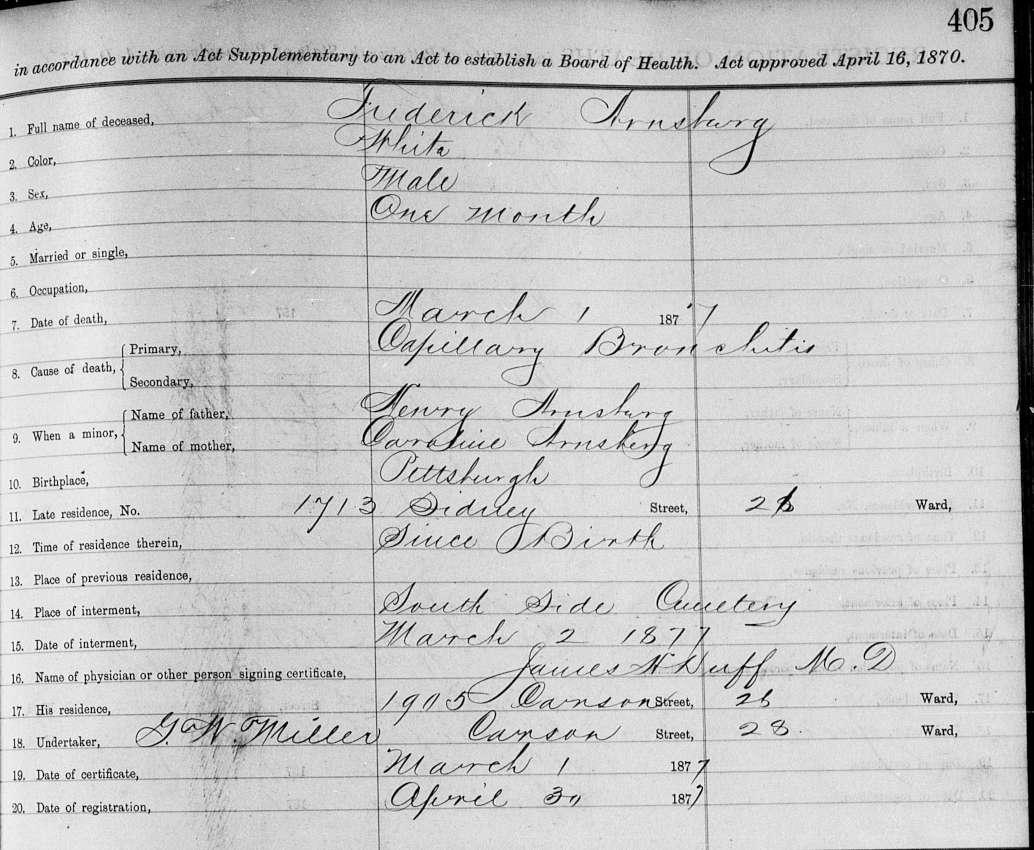 405
in accordance with an Act Supplementary to an Act to establish a Board of Health. Act approved April 16, 1870.
1. Full name of deceased, Frederick Arnsburg
2. Color, White
3. Sex, Male
4. Age, One month
5. Married or single,
6. Occupation,
7. Date of death, March 1 1877
8. Cause of death, Primary, Capillary Bronchitis
Secondary,
9. When a minor, Name of father, Henry Arnsburg
Name of mother, Caroline Arnsberg
10. Birthplace, Pittsburgh
11. Late residence, No. 1713 Sidney Street, Ward,
12. Time of residence therein, Since Birth
13. Place of previous residence,
14. Place of interment, South Side Cemetery
15. Date of interment, March 2 1877
16. Name of physician or other person signing certificate, James H Duff M.D
17. His residence, 1905 Carson Street, Ward,
18. Undertaker, G. W. Miller Carson Street, 28 Ward,
19. Date of certificate, March 1 1877
20. Date of registration, April 30 1877